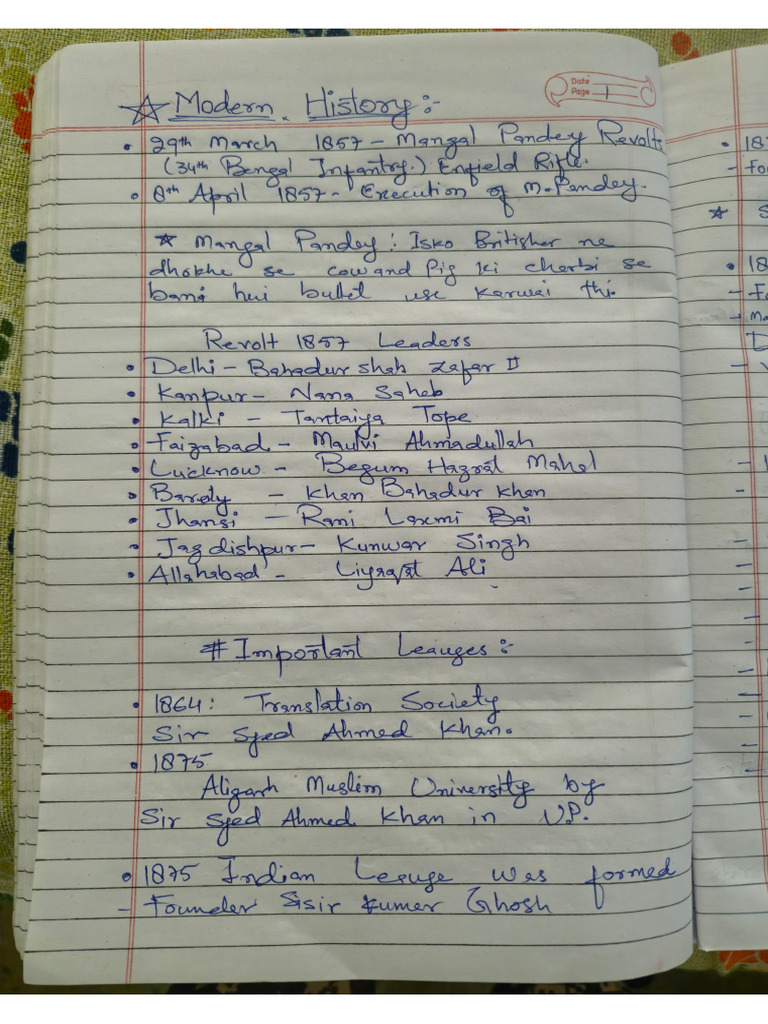 Date
Page 1
☆ Modern History:-
• 29th March 1857 - Mangal Pandey Revolts
(34th Bengal Infantry.) Enfield Rifle.
• 8th April 1857 - Execution of M. Pandey.
* Mangal Pandey: Isko Britisher ne
dhokhe se cow and Pig ki charbi se
bani hui bullet use karwai thi.
Revolt 1857 Leaders
• Delhi - Bahadur shah zafar II
• Kanpur - Nana Saheb
• Kalki - Tantaiya Tope
• Faizabad - Maulvi Ahmadullah
• Lucknow - Begum Hazrat Mahal
• Barely - Khan Bahadur Khan
• Jhansi - Rani Laxmi Bai
• Jagdishpur - Kunwar Singh
• Allahabad - Liyaqat Ali
# Important Leauges:-
• 1864: Translation Society
Sir Syed Ahmed Khan.
• 1875
Aligarh Muslim University by
Sir Syed Ahmed Khan in U.P.
• 1875 Indian Leauge was formed
- Founder Sisir Kumar Ghosh